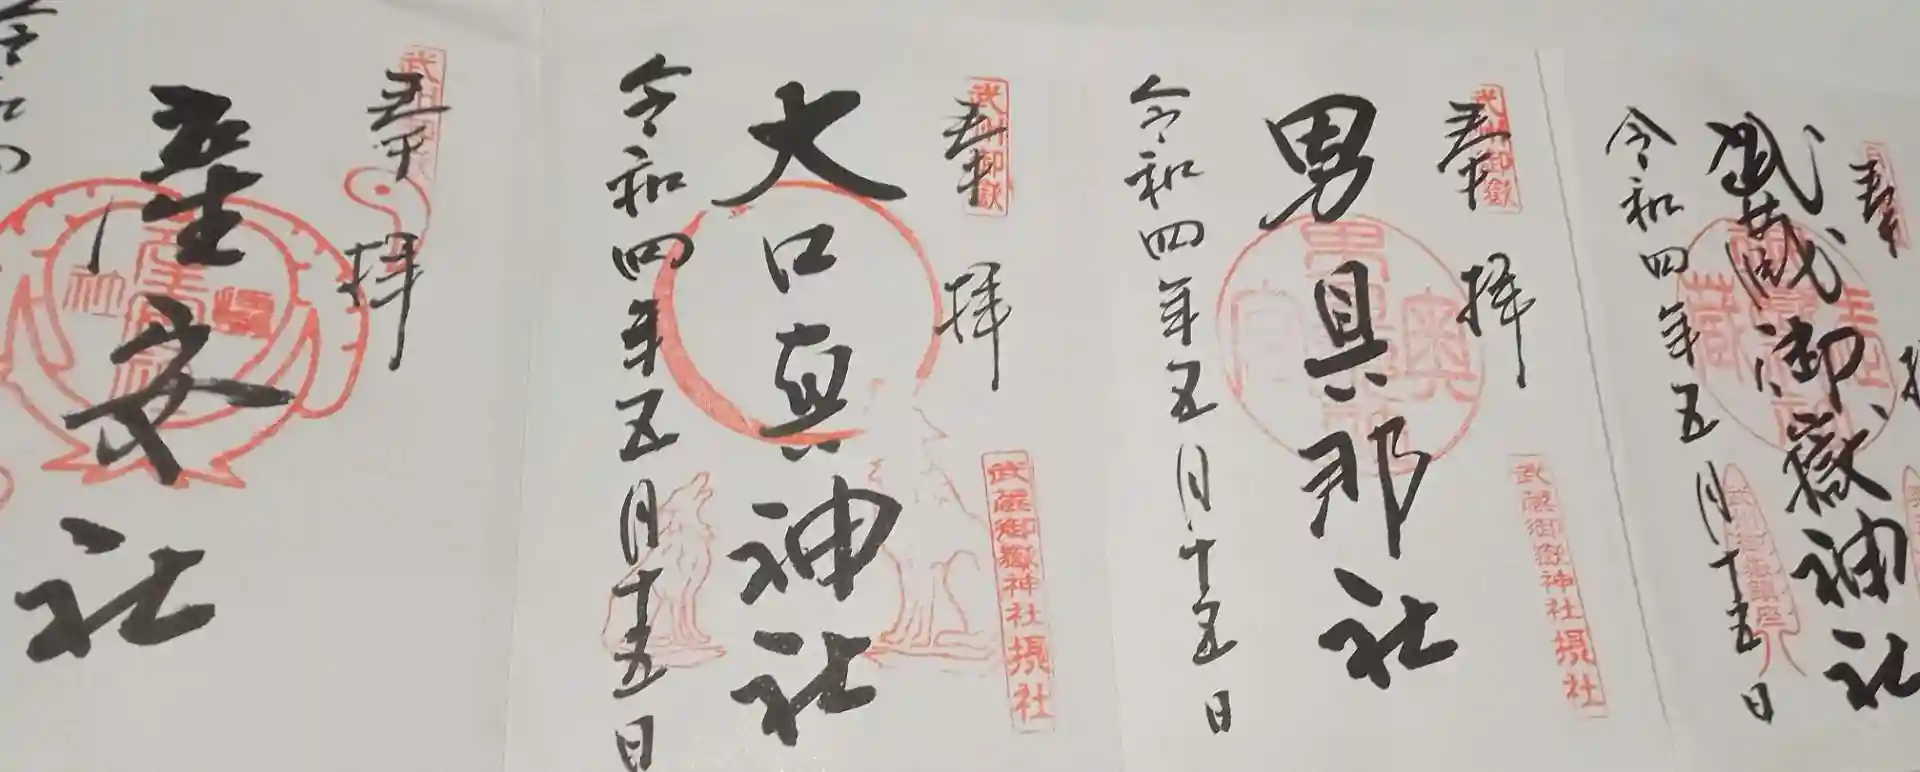 奉拝
武蔵御嶽神社
令和四年五月十五日
武州御嶽
奉拝
男具那社
令和四年五月十五日
武蔵御嶽神社摂社
武州御嶽
奉拝
大口真神社
令和四年五月十五日
武蔵御嶽神社摂社
奉拝
産安社